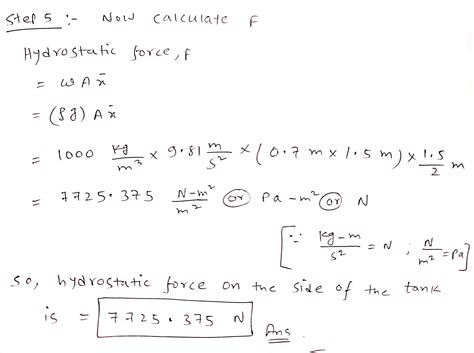 Step 5 :- Now calculate F
Hydrostatic force, F
= w A x̄
= (ρg) A x̄
= 1000 kg/m³ × 9.81 m/s² × (0.7 m × 1.5 m) × 1.5/2 m
= 7725.375 N-m²/m² or Pa-m² or N
[∵ kg-m/s² = N ; N/m² = Pa]
so, hydrostatic force on the side of the tank
is = 7725.375 N Ans.